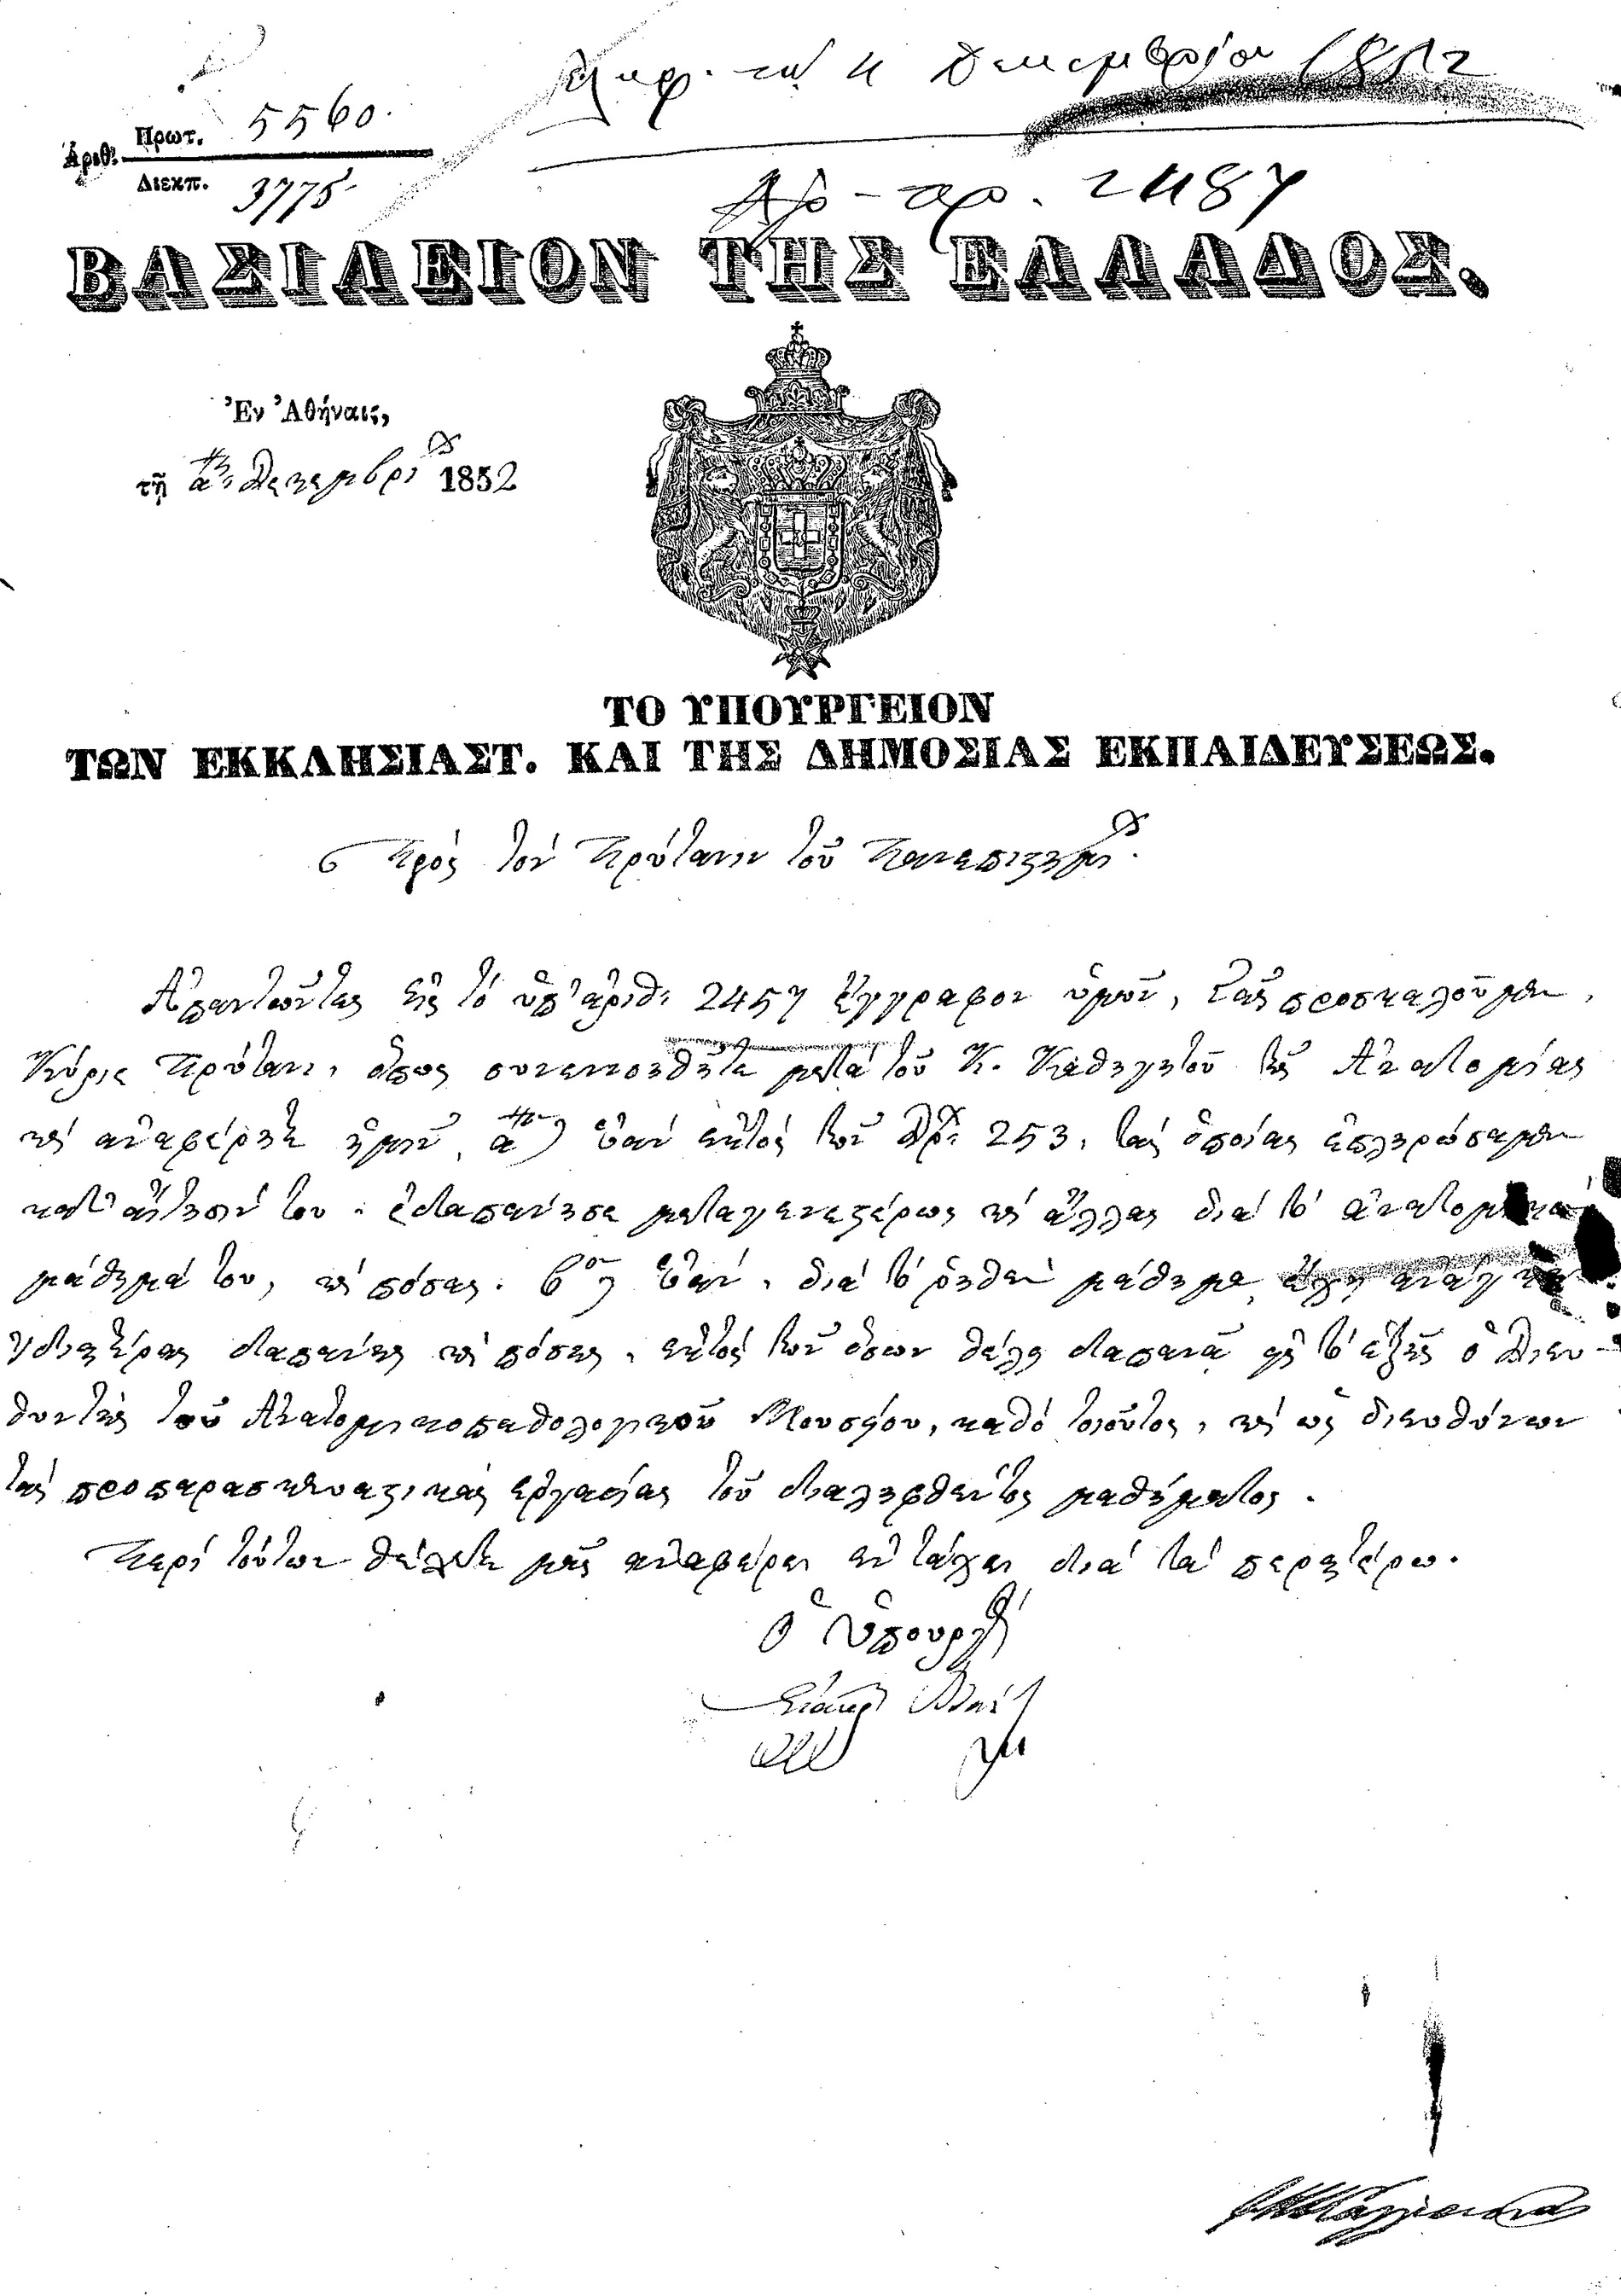 Δεκεμβρίου 1852
Ἀριθ. Πρωτ. 5560.
Διεκπ. 3775
2487
ΒΑΣΙΛΕΙΟΝ ΤΗΣ ΕΛΛΑΔΟΣ.
Ἐν Ἀθήναις,
τῇ α΄. Δεκεμβρίου 1852
ΤΟ ΥΠΟΥΡΓΕΙΟΝ
ΤΩΝ ΕΚΚΛΗΣΙΑΣΤ. ΚΑΙ ΤΗΣ ΔΗΜΟΣΙΑΣ ΕΚΠΑΙΔΕΥΣΕΩΣ.
Πρὸς τὸν Πρύτανιν τοῦ Πανεπιστημίου.
Ἀπαντῶντες εἰς τὸ ὑπ' ἀριθ: 2457 ἔγγραφον ὑμῶν, Σᾶς προσκαλοῦμεν,
Κύριε Πρύτανι, ὅπως συνεννοηθῆτε μετὰ τοῦ Κ. Καθηγητοῦ τῆς Ἀνατομίας
καὶ ἀναφέρητε ἡμῖν α) ἐὰν ἐκτὸς τῶν δρ: 253, τὰς ὁποίας ἐπληρώσαμεν
κατ' αἴτησίν του, ἐδαπάνησε μεταγενεστέρως καὶ ἄλλας διὰ τὸ ἀνατομικὸν
μάθημά του, καὶ πόσας. β) ἐὰν, διὰ τὸ ῥηθὲν μάθημα ἔχῃ ἀνάγκην
ἰδιαιτέρας δαπάνης καὶ πόσης, ἐκτὸς τῶν ὅσων θέλει δαπανᾷ εἰς τὸ ἑξῆς ὁ Διευ-
θυντὴς τοῦ Ἀνατομικοπαθολογικοῦ Μουσείου, καθὸ τοιοῦτος, καὶ ὡς διευθύνων
τὰς προπαρασκευαστικὰς ἐργασίας τοῦ διαληφθέντος μαθήματος.
Περὶ τούτων θέλετε μᾶς ἀναφέρει ἐν τάχει διὰ τὰ περαιτέρω.
Ὁ Ὑπουργὸς